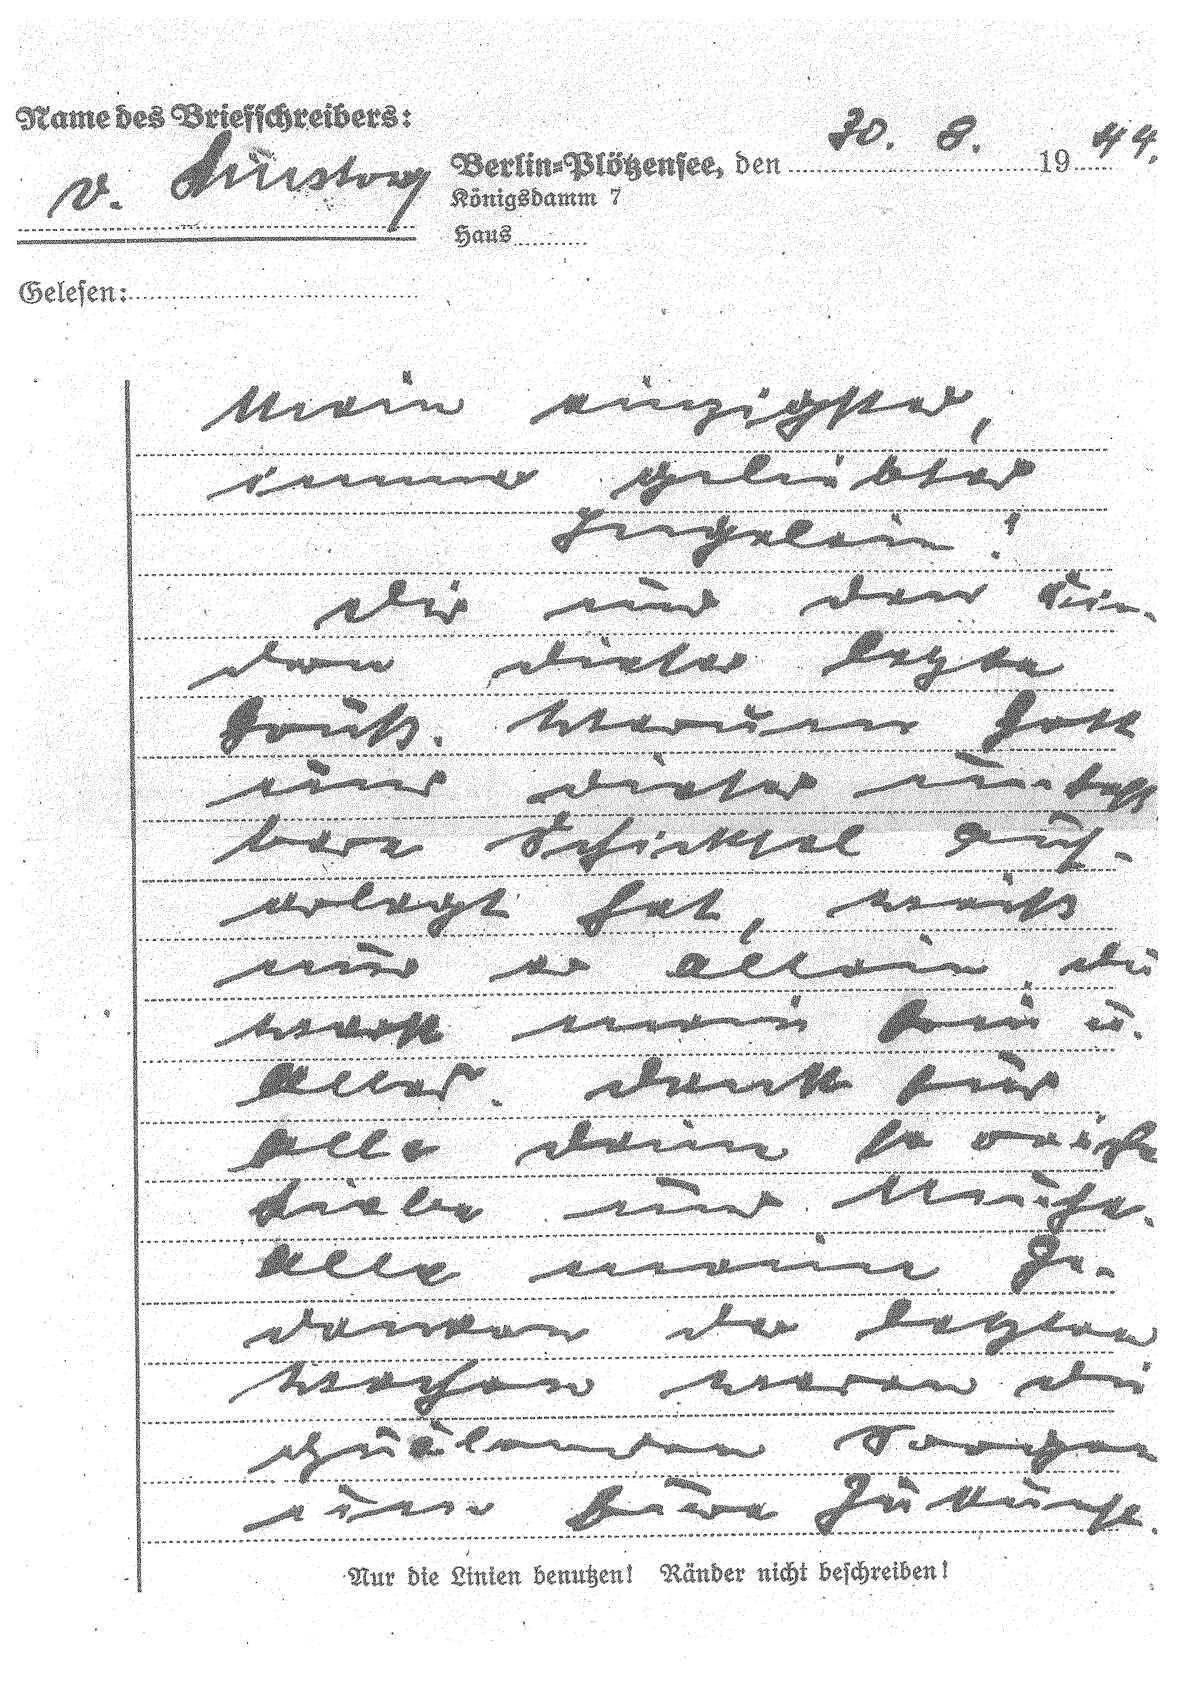 Name des Briefschreibers:
v. Linstow
Berlin-Plötzensee, den 30. 8. 1944.
Königsdamm 7
Haus
Gelesen:
Mein einzigster,
immer geliebter
Ingelein!
Dir und den Kin-
dern dieser letzte
Gruß. Warum Gott
uns dieses unfaß
bare Schicksal auf-
erlegt hat, weiß
nur er allein. Du
warst mein Ein u.
Alles. Dank für
alle Deine so reiche
Liebe und Mühe.
Alle meine Ge-
danken der letzten
Wochen waren die
quälenden Sorgen
um Eure Zukunft.
Nur die Linien benutzen! Ränder nicht beschreiben!